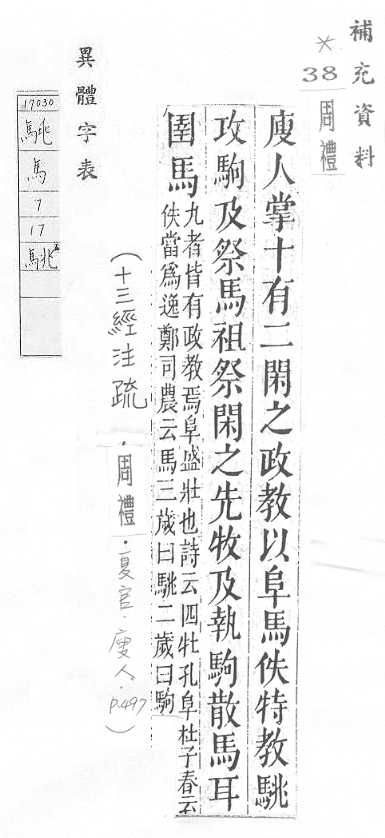 補充資料
*
38
周禮
廋人掌十有二閑之政教以阜馬佚特教駣
攻駒及祭馬祖祭閑之先牧及執駒散馬耳
圉馬九者皆有政教焉阜盛壯也詩云四牡孔阜杜子春云
佚當爲逸鄭司農云馬三歲曰駣二歲曰駒
(十三經注疏.周禮.夏官.廋人.P.497)
異體字表
17030
駣
馬
7
17
駣